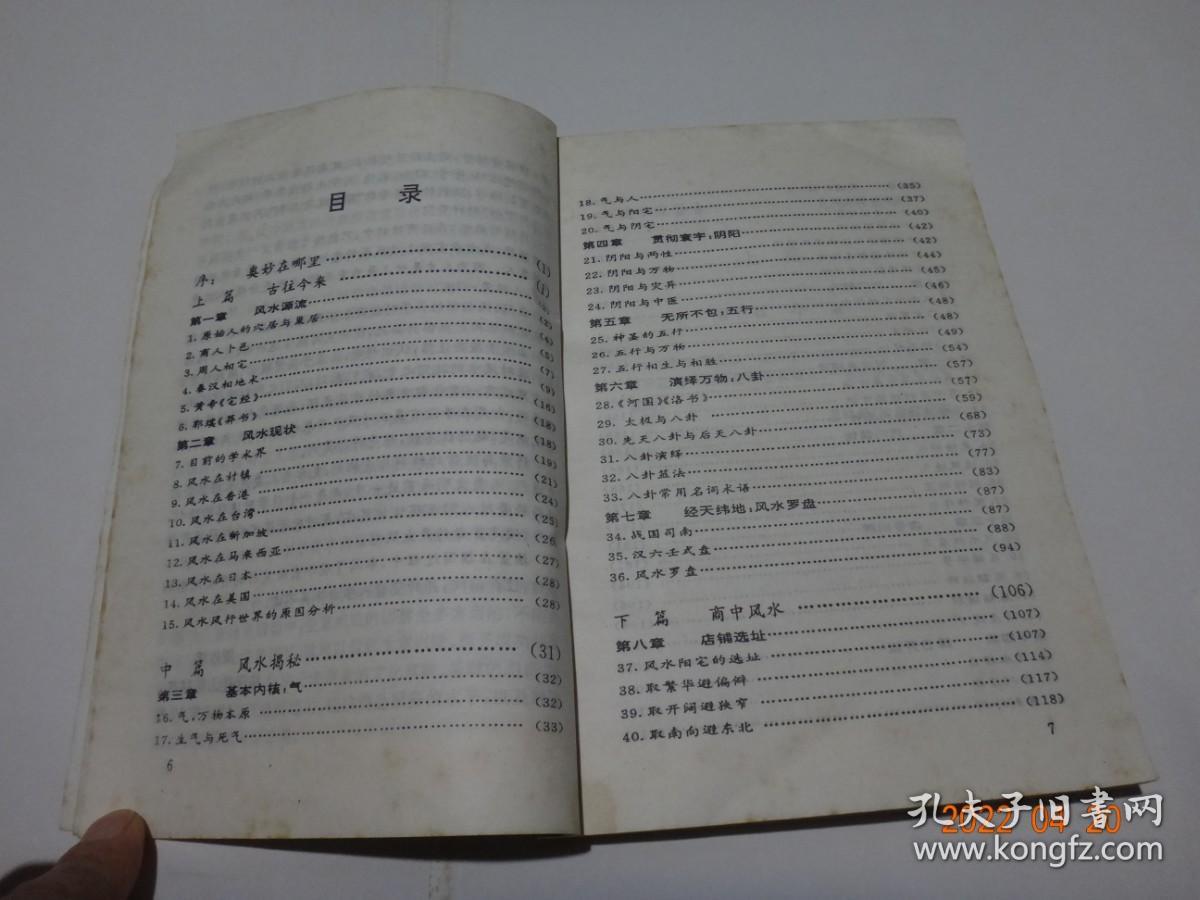 目 录
序： 奥妙在哪里……………………(1)
上 篇 古往今来……………………(1)
第一章 风水源流……………………(2)
1. 原始人的穴居与巢居……………………(2)
2. 商人卜邑……………………(4)
3. 周人相宅……………………(5)
4. 秦汉相地术……………………(7)
5. 黄帝《宅经》……………………(9)
6. 郭璞《葬书》……………………(16)
第二章 风水现状……………………(18)
7. 目前的学术界……………………(18)
8. 风水在村镇……………………(19)
9. 风水在香港……………………(21)
10. 风水在台湾……………………(24)
11. 风水在新加坡……………………(25)
12. 风水在马来西亚……………………(26)
13. 风水在日本……………………(27)
14. 风水在美国……………………(28)
15. 风水风行世界的原因分析……………………(28)
中 篇 风水揭秘……………………(31)
第三章 基本内核：气……………………(32)
16. 气，万物本原……………………(32)
17. 生气与死气……………………(33)
6
18. 气与人……………………(35)
19. 气与阳宅……………………(37)
20. 气与阴宅……………………(40)
第四章 贯彻寰宇：阴阳……………………(42)
21. 阴阳与两性……………………(42)
22. 阴阳与万物……………………(44)
23. 阴阳与灾异……………………(45)
24. 阴阳与中医……………………(46)
第五章 无所不包：五行……………………(48)
25. 神圣的五行……………………(48)
26. 五行与万物……………………(49)
27. 五行相生与相胜……………………(54)
第六章 演绎万物：八卦……………………(57)
28. 《河图》《洛书》……………………(57)
29. 太极与八卦……………………(59)
30. 先天八卦与后天八卦……………………(68)
31. 八卦演绎……………………(73)
32. 八卦筮法……………………(77)
33. 八卦常用名词术语……………………(83)
第七章 经天纬地：风水罗盘……………………(87)
34. 战国司南……………………(87)
35. 汉六壬式盘……………………(88)
36. 风水罗盘……………………(94)
下 篇 商中风水……………………(106)
第八章 店铺选址……………………(107)
37. 风水阳宅的选址……………………(107)
38. 取繁华避偏僻……………………(114)
39. 取开阔避狭窄……………………(117)
40. 取南向避东北……………………(118)
7
2022 04 20
孔夫子旧书网
www.kongfz.com